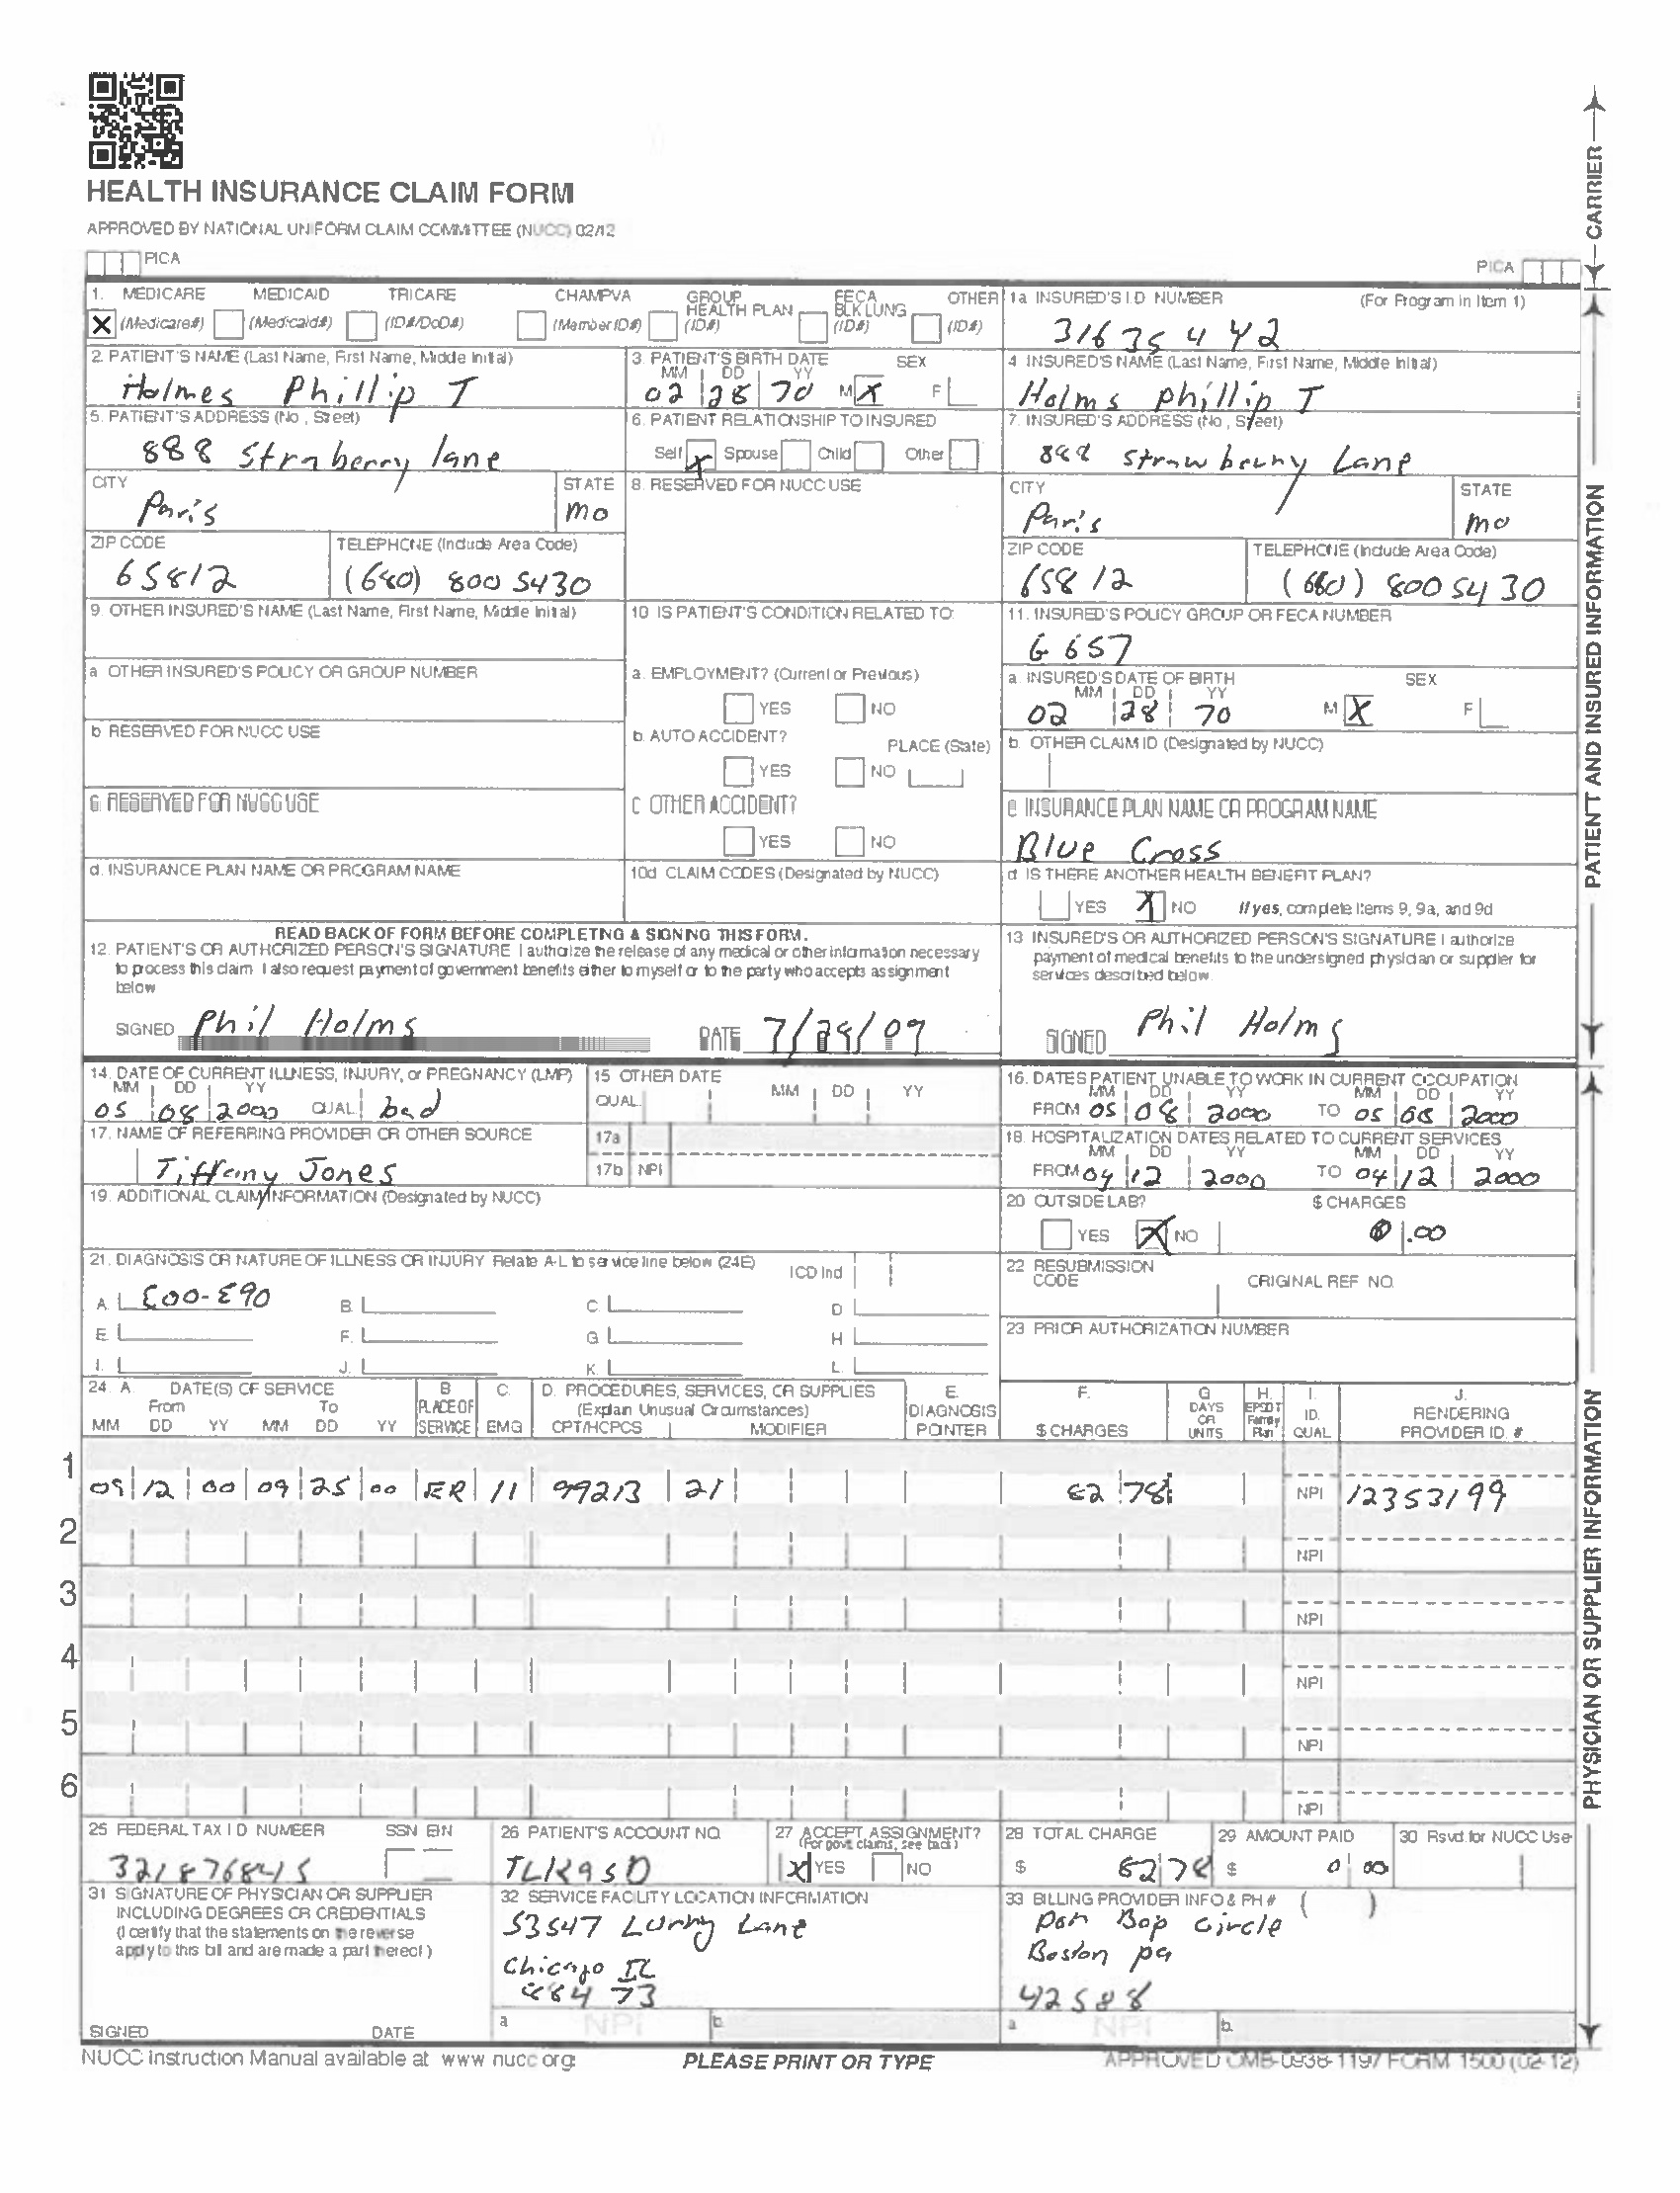 HEALTH INSURANCE CLAIM FORM
APPROVED BY NATIONAL UNIFORM CLAIM COMMITTEE (NUCC) 02/12
PICA
PICA
CARRIER
1. MEDICARE MEDICAID TRICARE CHAMPVA GROUP HEALTH PLAN FECA BLK LUNG OTHER
X (Medicare#) (Medicaid#) (ID#/DoD#) (Member ID#) (ID#) (ID#) (ID#)
1a INSURED'S I.D. NUMBER (For Program in Item 1)
31635442
2. PATIENT'S NAME (Last Name, First Name, Middle Initial)
Holmes Phillip T
3 PATIENT'S BIRTH DATE SEX
MM DD YY
02 28 70 M X F
4 INSURED'S NAME (Last Name, First Name, Middle Initial)
Holms Phillip T
5. PATIENT'S ADDRESS (No, Street)
888 Straberry lane
6. PATIENT RELATIONSHIP TO INSURED
Self X Spouse Child Other
7. INSURED'S ADDRESS (No, Street)
888 Strawberry Lane
CITY
Paris
STATE
mo
8. RESERVED FOR NUCC USE
CITY
Paris
STATE
mo
ZIP CODE
65812
TELEPHONE (Include Area Code)
(680) 800 5430
ZIP CODE
65812
TELEPHONE (Include Area Code)
(660) 800 5430
9. OTHER INSURED'S NAME (Last Name, First Name, Middle Initial)
10 IS PATIENT'S CONDITION RELATED TO:
11. INSURED'S POLICY GROUP OR FECA NUMBER
G 657
a OTHER INSURED'S POLICY OR GROUP NUMBER
a. EMPLOYMENT? (Current or Previous)
YES NO
a. INSURED'S DATE OF BIRTH SEX
MM DD YY
02 28 70 M X F
b RESERVED FOR NUCC USE
b. AUTO ACCIDENT? PLACE (State)
YES NO
b. OTHER CLAIM ID (Designated by NUCC)
c RESERVED FOR NUCC USE
c OTHER ACCIDENT?
YES NO
c INSURANCE PLAN NAME OR PROGRAM NAME
Blue Cross
d. INSURANCE PLAN NAME OR PROGRAM NAME
10d CLAIM CODES (Designated by NUCC)
d IS THERE ANOTHER HEALTH BENEFIT PLAN?
YES X NO If yes, complete items 9, 9a, and 9d
READ BACK OF FORM BEFORE COMPLETING & SIGNING THIS FORM.
12. PATIENT'S OR AUTHORIZED PERSON'S SIGNATURE I authorize the release of any medical or other information necessary
to process this claim I also request payment of government benefits either to myself or to the party who accepts assignment
below
SIGNED Phil Holms DATE 7/29/09
13 INSURED'S OR AUTHORIZED PERSON'S SIGNATURE I authorize
payment of medical benefits to the undersigned physician or supplier for
services described below.
SIGNED Phil Holms
PATIENT AND INSURED INFORMATION
14. DATE OF CURRENT ILLNESS, INJURY, or PREGNANCY (LMP)
MM DD YY
05 08 2000 QUAL bad
15 OTHER DATE
QUAL MM DD YY
16. DATES PATIENT UNABLE TO WORK IN CURRENT OCCUPATION
MM DD YY MM DD YY
FROM 05 08 2000 TO 05 08 2000
17. NAME OF REFERRING PROVIDER OR OTHER SOURCE
Tiffany Jones
17a
17b NPI
18. HOSPITALIZATION DATES RELATED TO CURRENT SERVICES
MM DD YY MM DD YY
FROM 04 12 2000 TO 04 12 2000
19. ADDITIONAL CLAIM INFORMATION (Designated by NUCC)
20 OUTSIDE LAB? $ CHARGES
YES X NO 0 .00
21. DIAGNOSIS OR NATURE OF ILLNESS OR INJURY Relate A-L to service line below (24E) ICD Ind
A. E00-E90 B. C. D.
E. F. G. H.
I. J. K. L.
22 RESUBMISSION CODE ORIGINAL REF. NO.
23 PRIOR AUTHORIZATION NUMBER
24. A. DATE(S) OF SERVICE B C. D. PROCEDURES, SERVICES, OR SUPPLIES E. F. G. H. I. J.
From To PLACE OF (Explain Unusual Circumstances) DIAGNOSIS DAYS OR UNITS EPSDT Family Plan ID. RENDERING
MM DD YY MM DD YY SERVICE EMG CPT/HCPCS MODIFIER POINTER $ CHARGES QUAL. PROVIDER ID. #
1
09 12 00 09 25 00 ER 11 99213 21 62 78 NPI 12353199
2
NPI
3
NPI
4
NPI
5
NPI
6
NPI
25 FEDERAL TAX I.D. NUMBER SSN EIN
321876845
26 PATIENT'S ACCOUNT NO.
TLK950
27 ACCEPT ASSIGNMENT?
(For govt. claims, see back)
X YES NO
28 TOTAL CHARGE
$ 62 78
29 AMOUNT PAID
$ 0 00
30 Rsvd for NUCC Use
31 SIGNATURE OF PHYSICIAN OR SUPPLIER
INCLUDING DEGREES OR CREDENTIALS
(I certify that the statements on the reverse
apply to this bill and are made a part thereof.)
SIGNED DATE
32 SERVICE FACILITY LOCATION INFORMATION
53547 Lane
Chicago IL
88473
a NPI b.
33 BILLING PROVIDER INFO & PH # ( )
Bop Circle
Boston pa
42588
a NPI b.
PHYSICIAN OR SUPPLIER INFORMATION
NUCC Instruction Manual available at www nucc org:
PLEASE PRINT OR TYPE
APPROVED OMB-0938-1197 FORM 1500 (02-12)